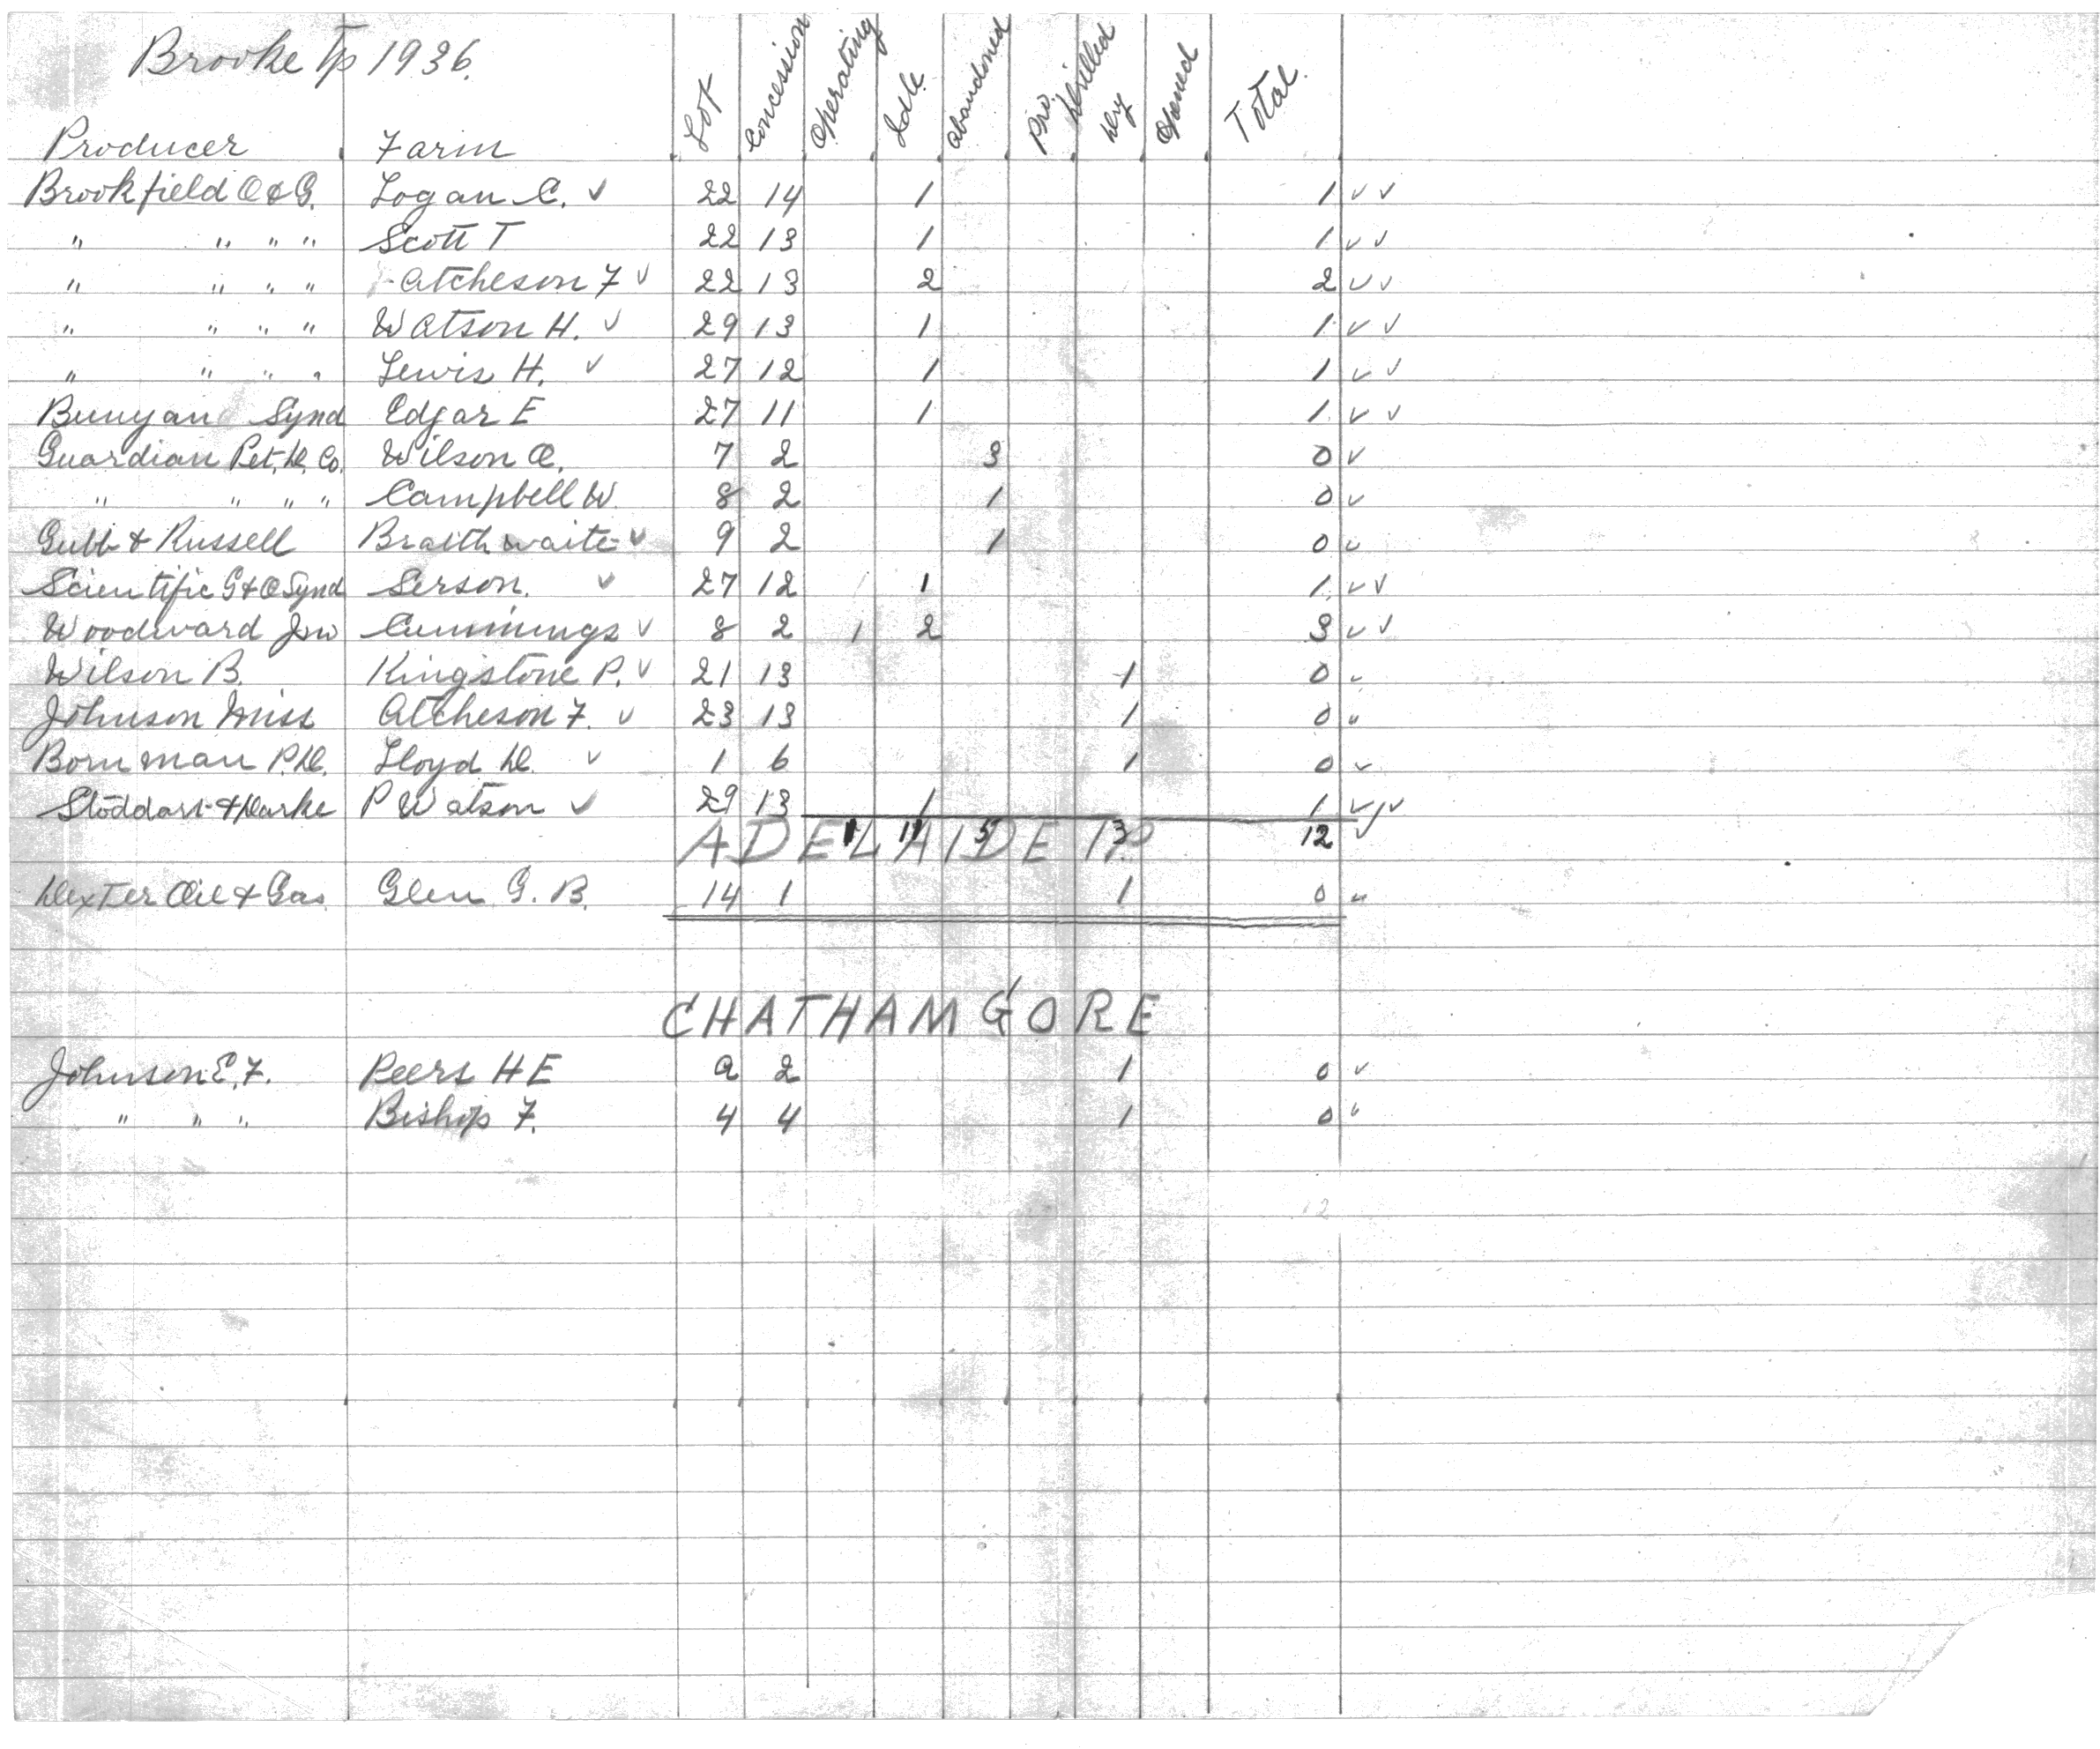 Brooke Tp 1936.
Producer Farm Lot Concession Operating Idle Abandoned Pro. Drilled Dry Opened Total.
Brookfield O & G. Logan C. ✓ 22 14 1 1 ✓ ✓
" " " " Scott T 22 13 1 1 ✓ ✓
" " " " Atcheson F ✓ 22 13 2 2 ✓ ✓
" " " " Watson H. ✓ 29 13 1 1 ✓ ✓
" " " " Lewis H. ✓ 27 12 1 1 ✓ ✓
Bunyan Synd Edgar E 27 11 1 1 ✓ ✓
Guardian Pet. D. Co. Wilson A. 7 2 3 0 ✓
" " " " Campbell W. 8 2 1 0 ✓
Gubb & Russell Braithwaite ✓ 9 2 1 0 ✓
Scientific G & O Synd Serson. ✓ 27 12 1 1 ✓ ✓
Woodward Jno Cummings ✓ 8 2 1 2 3 ✓ ✓
Wilson B. Kingstone P. ✓ 21 13 1 0 ✓
Johnson Miss Atcheson F. ✓ 23 13 1 0 ✓
Bornman P.D. Lloyd D. ✓ 1 6 1 0 ✓
Stoddart & Darke P Watson ✓ 29 13 1 1 ✓ ✓
1 11 5 3 12 ✓
ADELAIDE TP
Dexter Oil & Gas Glen G. B. 14 1 1 0 ✓
CHATHAM GORE
Johnson E. F. Peers H E 2 2 1 0 ✓
" " " Bishop F. 4 4 1 0 ✓